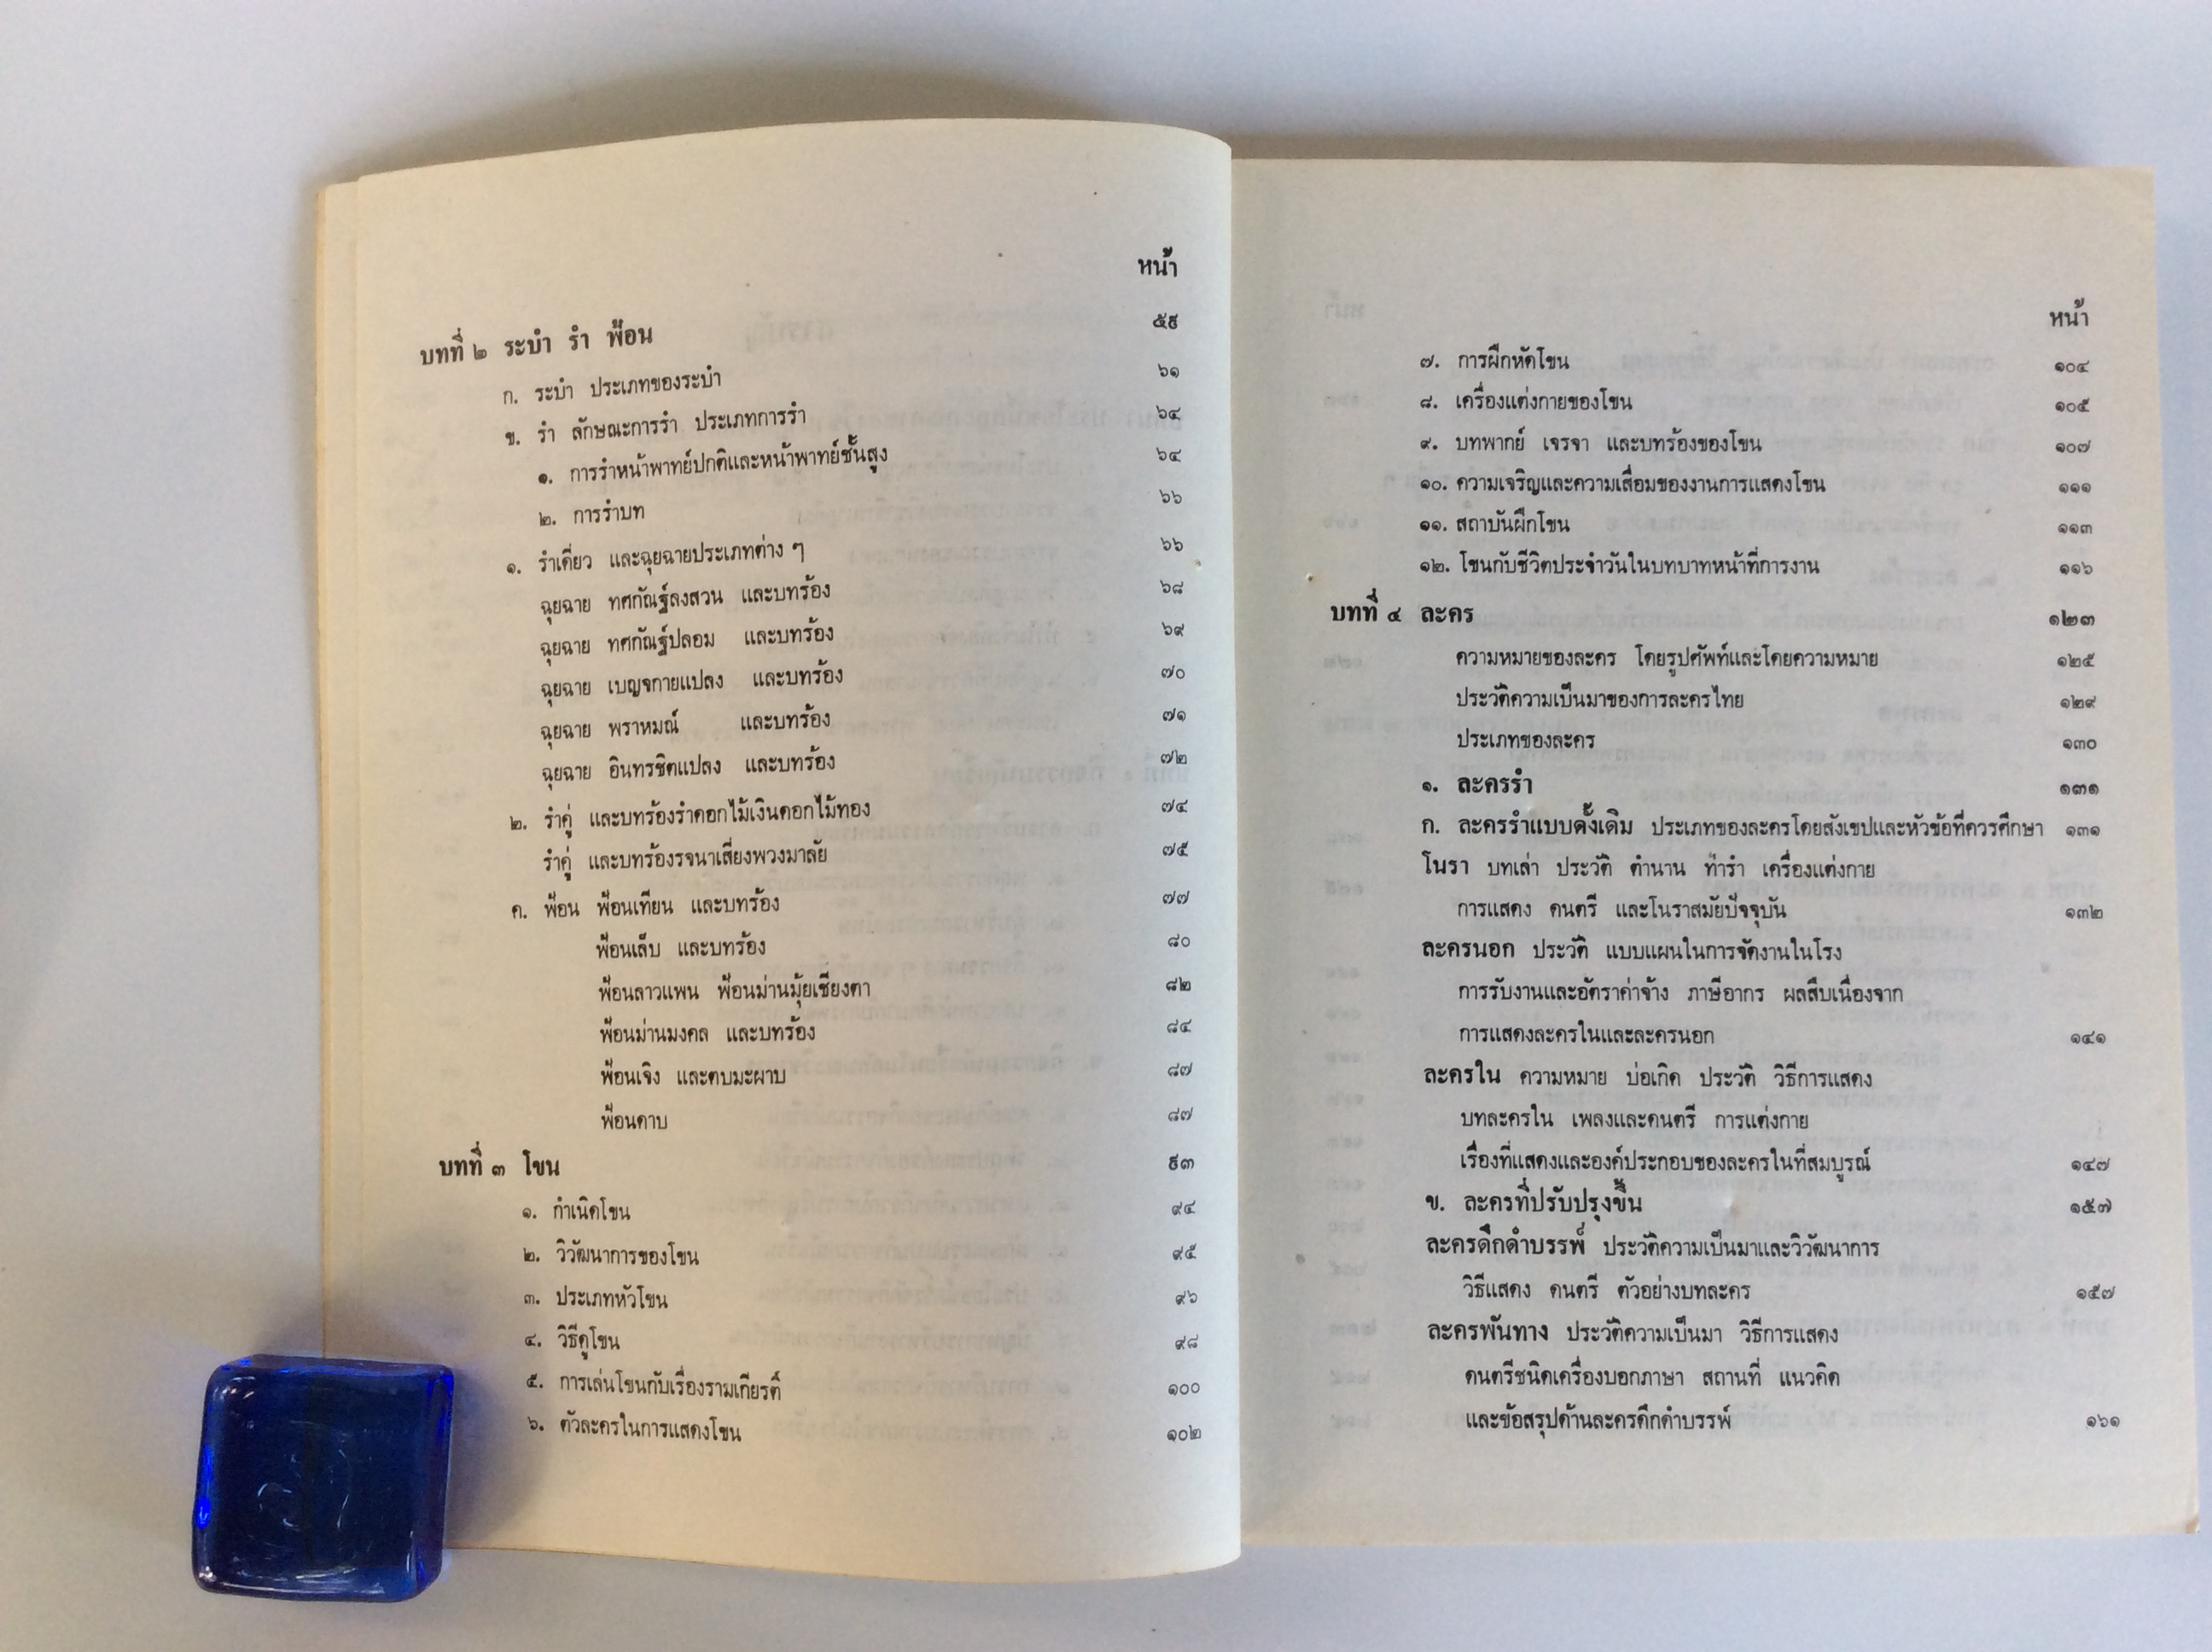 หน้า
บทที่ ๒ ระบำ รำ ฟ้อน ๕๙
ก. ระบำ ประเภทของระบำ ๖๑
ข. รำ ลักษณะการรำ ประเภทการรำ ๖๔
๑. การรำหน้าพาทย์ปกติและหน้าพาทย์ชั้นสูง ๖๔
๒. การรำบท ๖๖
๑. รำเดี่ยว และฉุยฉายประเภทต่าง ๆ ๖๖
ฉุยฉาย ทศกัณฐ์ลงสวน และบทร้อง ๖๘
ฉุยฉาย ทศกัณฐ์ปลอม และบทร้อง ๖๙
ฉุยฉาย เบญจกายแปลง และบทร้อง ๗๐
ฉุยฉาย พราหมณ์ และบทร้อง ๗๑
ฉุยฉาย อินทรชิตแปลง และบทร้อง ๗๒
๒. รำคู่ และบทร้องรำดอกไม้เงินดอกไม้ทอง ๗๔
รำคู่ และบทร้องรจนาเสี่ยงพวงมาลัย ๗๕
ค. ฟ้อน ฟ้อนเทียน และบทร้อง ๗๗
ฟ้อนเล็บ และบทร้อง ๘๐
ฟ้อนลาวแพน ฟ้อนม่านมุ้ยเชียงตา ๘๒
ฟ้อนม่านมงคล และบทร้อง ๘๔
ฟ้อนเจิง และตบมะผาบ ๘๗
ฟ้อนดาบ ๘๗
บทที่ ๓ โขน ๙๓
๑. กำเนิดโขน ๙๔
๒. วิวัฒนาการของโขน ๙๕
๓. ประเภทหัวโขน ๙๖
๔. วิธีดูโขน ๙๘
๕. การเล่นโขนกับเรื่องรามเกียรติ์ ๑๐๐
๖. ตัวละครในการแสดงโขน ๑๐๒
หน้า
๗. การฝึกหัดโขน ๑๐๔
๘. เครื่องแต่งกายของโขน ๑๐๕
๙. บทพากย์ เจรจา และบทร้องของโขน ๑๐๗
๑๐. ความเจริญและความเสื่อมของงานการแสดงโขน ๑๑๑
๑๑. สถาบันฝึกโขน ๑๑๓
๑๒. โขนกับชีวิตประจำวันในบทบาทหน้าที่การงาน ๑๑๖
บทที่ ๔ ละคร ๑๒๓
ความหมายของละคร โดยรูปศัพท์และโดยความหมาย ๑๒๕
ประวัติความเป็นมาของการละครไทย ๑๒๙
ประเภทของละคร ๑๓๐
๑. ละครรำ ๑๓๑
ก. ละครรำแบบดั้งเดิม ประเภทของละครโดยสังเขปและหัวข้อที่ควรศึกษา ๑๓๑
โนรา บทเล่า ประวัติ ตำนาน ท่ารำ เครื่องแต่งกาย
การแสดง ดนตรี และโนราสมัยปัจจุบัน ๑๓๒
ละครนอก ประวัติ แบบแผนในการจัดงานในโรง
การรับงานและอัตราค่าจ้าง ภาษีอากร ผลสืบเนื่องจาก
การแสดงละครในและละครนอก ๑๔๑
ละครใน ความหมาย บ่อเกิด ประวัติ วิธีการแสดง
บทละครใน เพลงและดนตรี การแต่งกาย
เรื่องที่แสดงและองค์ประกอบของละครในที่สมบูรณ์ ๑๔๗
ข. ละครที่ปรับปรุงขึ้น ๑๕๗
ละครดึกดำบรรพ์ ประวัติความเป็นมาและวิวัฒนาการ
วิธีแสดง ดนตรี ตัวอย่างบทละคร ๑๕๗
ละครพันทาง ประวัติความเป็นมา วิธีการแสดง
ดนตรีชนิดเครื่องบอกภาษา สถานที่ แนวคิด
และข้อสรุปด้านละครดึกดำบรรพ์ ๑๖๑